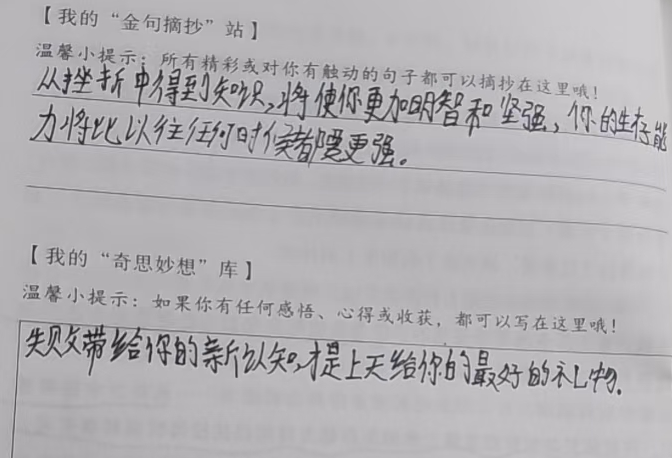 【我的“金句摘抄”站】
温馨小提示：所有精彩或对你有触动的句子都可以摘抄在这里哦！
从挫折中得到知识，将使你更加明智和坚强，你的生存能
力将比以往任何时候都要更强。
【我的“奇思妙想”库】
温馨小提示：如果你有任何感悟、心得或收获，都可以写在这里哦！
失败带给你的新认知，才是上天给你的最好的礼物。